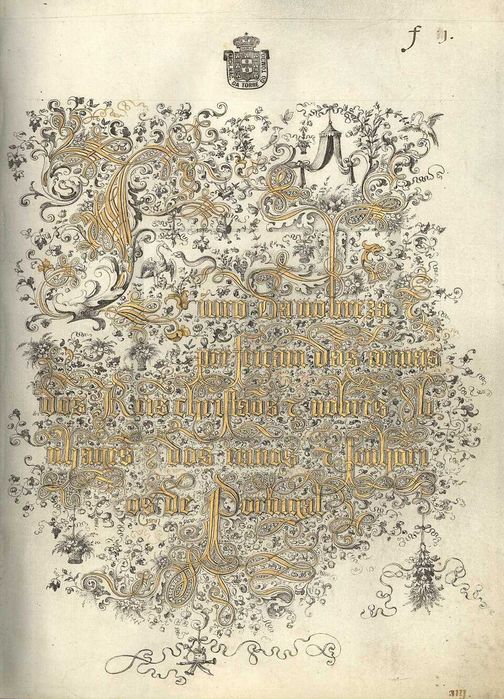 f iij.
DA TORRE DO TOMBO
Liuro da nobreza &
perfeiçam das armas
dos Reis christãos & nobres li
nhages dos reinos & senhori
os de Portugal